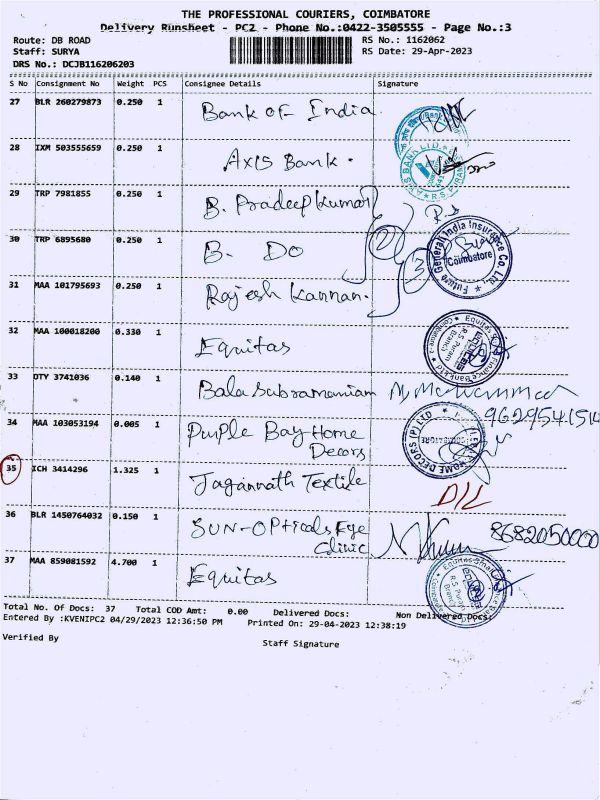 THE PROFESSIONAL COURIERS, COIMBATORE
Delivery Runsheet - PC2 - Phone No.:0422-3505555 - Page No.:3
Route: DB ROAD
RS No.: 1162062
Staff: SURYA
RS Date: 29-Apr-2023
DRS No.: DCJB116206203
S No Consignment No Weight PCS Consignee Details Signature
27 BLR 260279873 0.250 1 Bank of India
28 IXM 503555659 0.250 1 Axis Bank.
29 TRP 7981855 0.250 1 B. Pradeep Kumar
30 TRP 6895680 0.250 1 B. Do
Future Generali India Insurance Co. Ltd.,
Coimbatore
31 MAA 101795693 0.250 1 Rajesh Kannan.
32 MAA 100018200 0.330 1 Equitas
33 OTY 3741036 0.140 1 Bala Subramaniam
34 MAA 103053194 0.005 1 Purple Bay Home
Decors
HOME DECORS (P) LTD
35 ICH 3414296 1.325 1 Jagannath Textile D/L
36 BLR 1450764032 0.150 1 SUN-Opticals Eye
Clinic 8682050000
37 MAA 859081592 4.700 1 Equitas
Total No. Of Docs: 37 Total COD Amt: 0.00 Delivered Docs: Non Delivered Docs:
Entered By :KVENIPC2 04/29/2023 12:36:50 PM Printed On: 29-04-2023 12:38:19
Verified By
Staff Signature